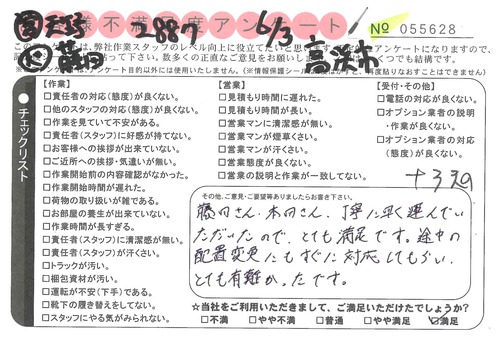 お客様不満足度アンケート
2887
6/3
高浜市
藤田
№ 055628
このアンケートは、弊社作業スタッフのレベル向上に役立てたいと思います。
【作業】
□責任者の対応(態度)が良くない。
□他のスタッフの対応(態度)が良くない。
□作業を見ていて不安がある。
□責任者(スタッフ)に好感が持てない。
□お客様への挨拶が出来ていない。
□ご近所への挨拶・気遣いが無い。
□作業開始前の内容確認がなかった。
□作業開始時間が遅れた。
□荷物の取り扱いが雑である。
□お部屋の養生が出来ていない。
□作業時間が長すぎる。
□責任者(スタッフ)に清潔感が無い。
□責任者(スタッフ)が汗くさい。
□トラックが汚い。
□梱包資材が汚い。
□運転が不安(下手)である。
□靴下の履き替えをしてない。
□スタッフにやる気がみられない。
【営業】
□見積もり時間に遅れた。
□見積もり時間が長い。
□営業マンに清潔感が無い。
□営業マンが煙草くさい。
□営業マンが汗くさい。
□営業態度が良くない。
□営業の説明と作業が一致してない。
【受付・その他】
□電話の対応が良くない。
□オプション業者の説明
・作業が良くない。
□オプション業者の対応
(態度)が良くない。
チェックリスト
その他、ご意見・ご要望等ありましたらお書き下さい。
藤田さん、本田さん、丁寧に早く運んでい
ただいたので、とても満足です。途中の
配置変更にもすぐに対応してもらい、
とても有難かったです。
☆当社をご利用いただきまして、ご満足いただけたでしょうか?
□不満 □やや不満 □普通 □やや満足 ☑満足